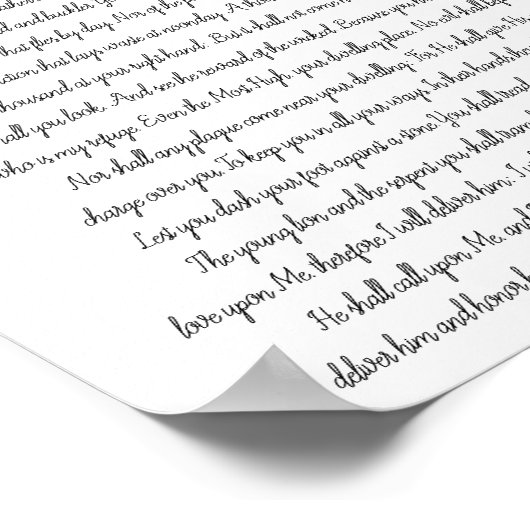 and buckler. You
that flies by day. Nor of the
ation that lays waste at noonday. A thou
thousand at your right hand. But it shall not come
all you look. And see the reward of the wicked. Because you
who is my refuge. Even the Most High, your dwelling place. No evil shall
Nor shall any plague come near your dwelling; For He shall
charge over you, To keep you in all your ways. In her hands
Lest you dash your foot against a stone. You shall tread
The young lion and the serpent you shall tram
love upon Me, therefore I will deliver him; I
He shall call upon Me, and
deliver him and honor